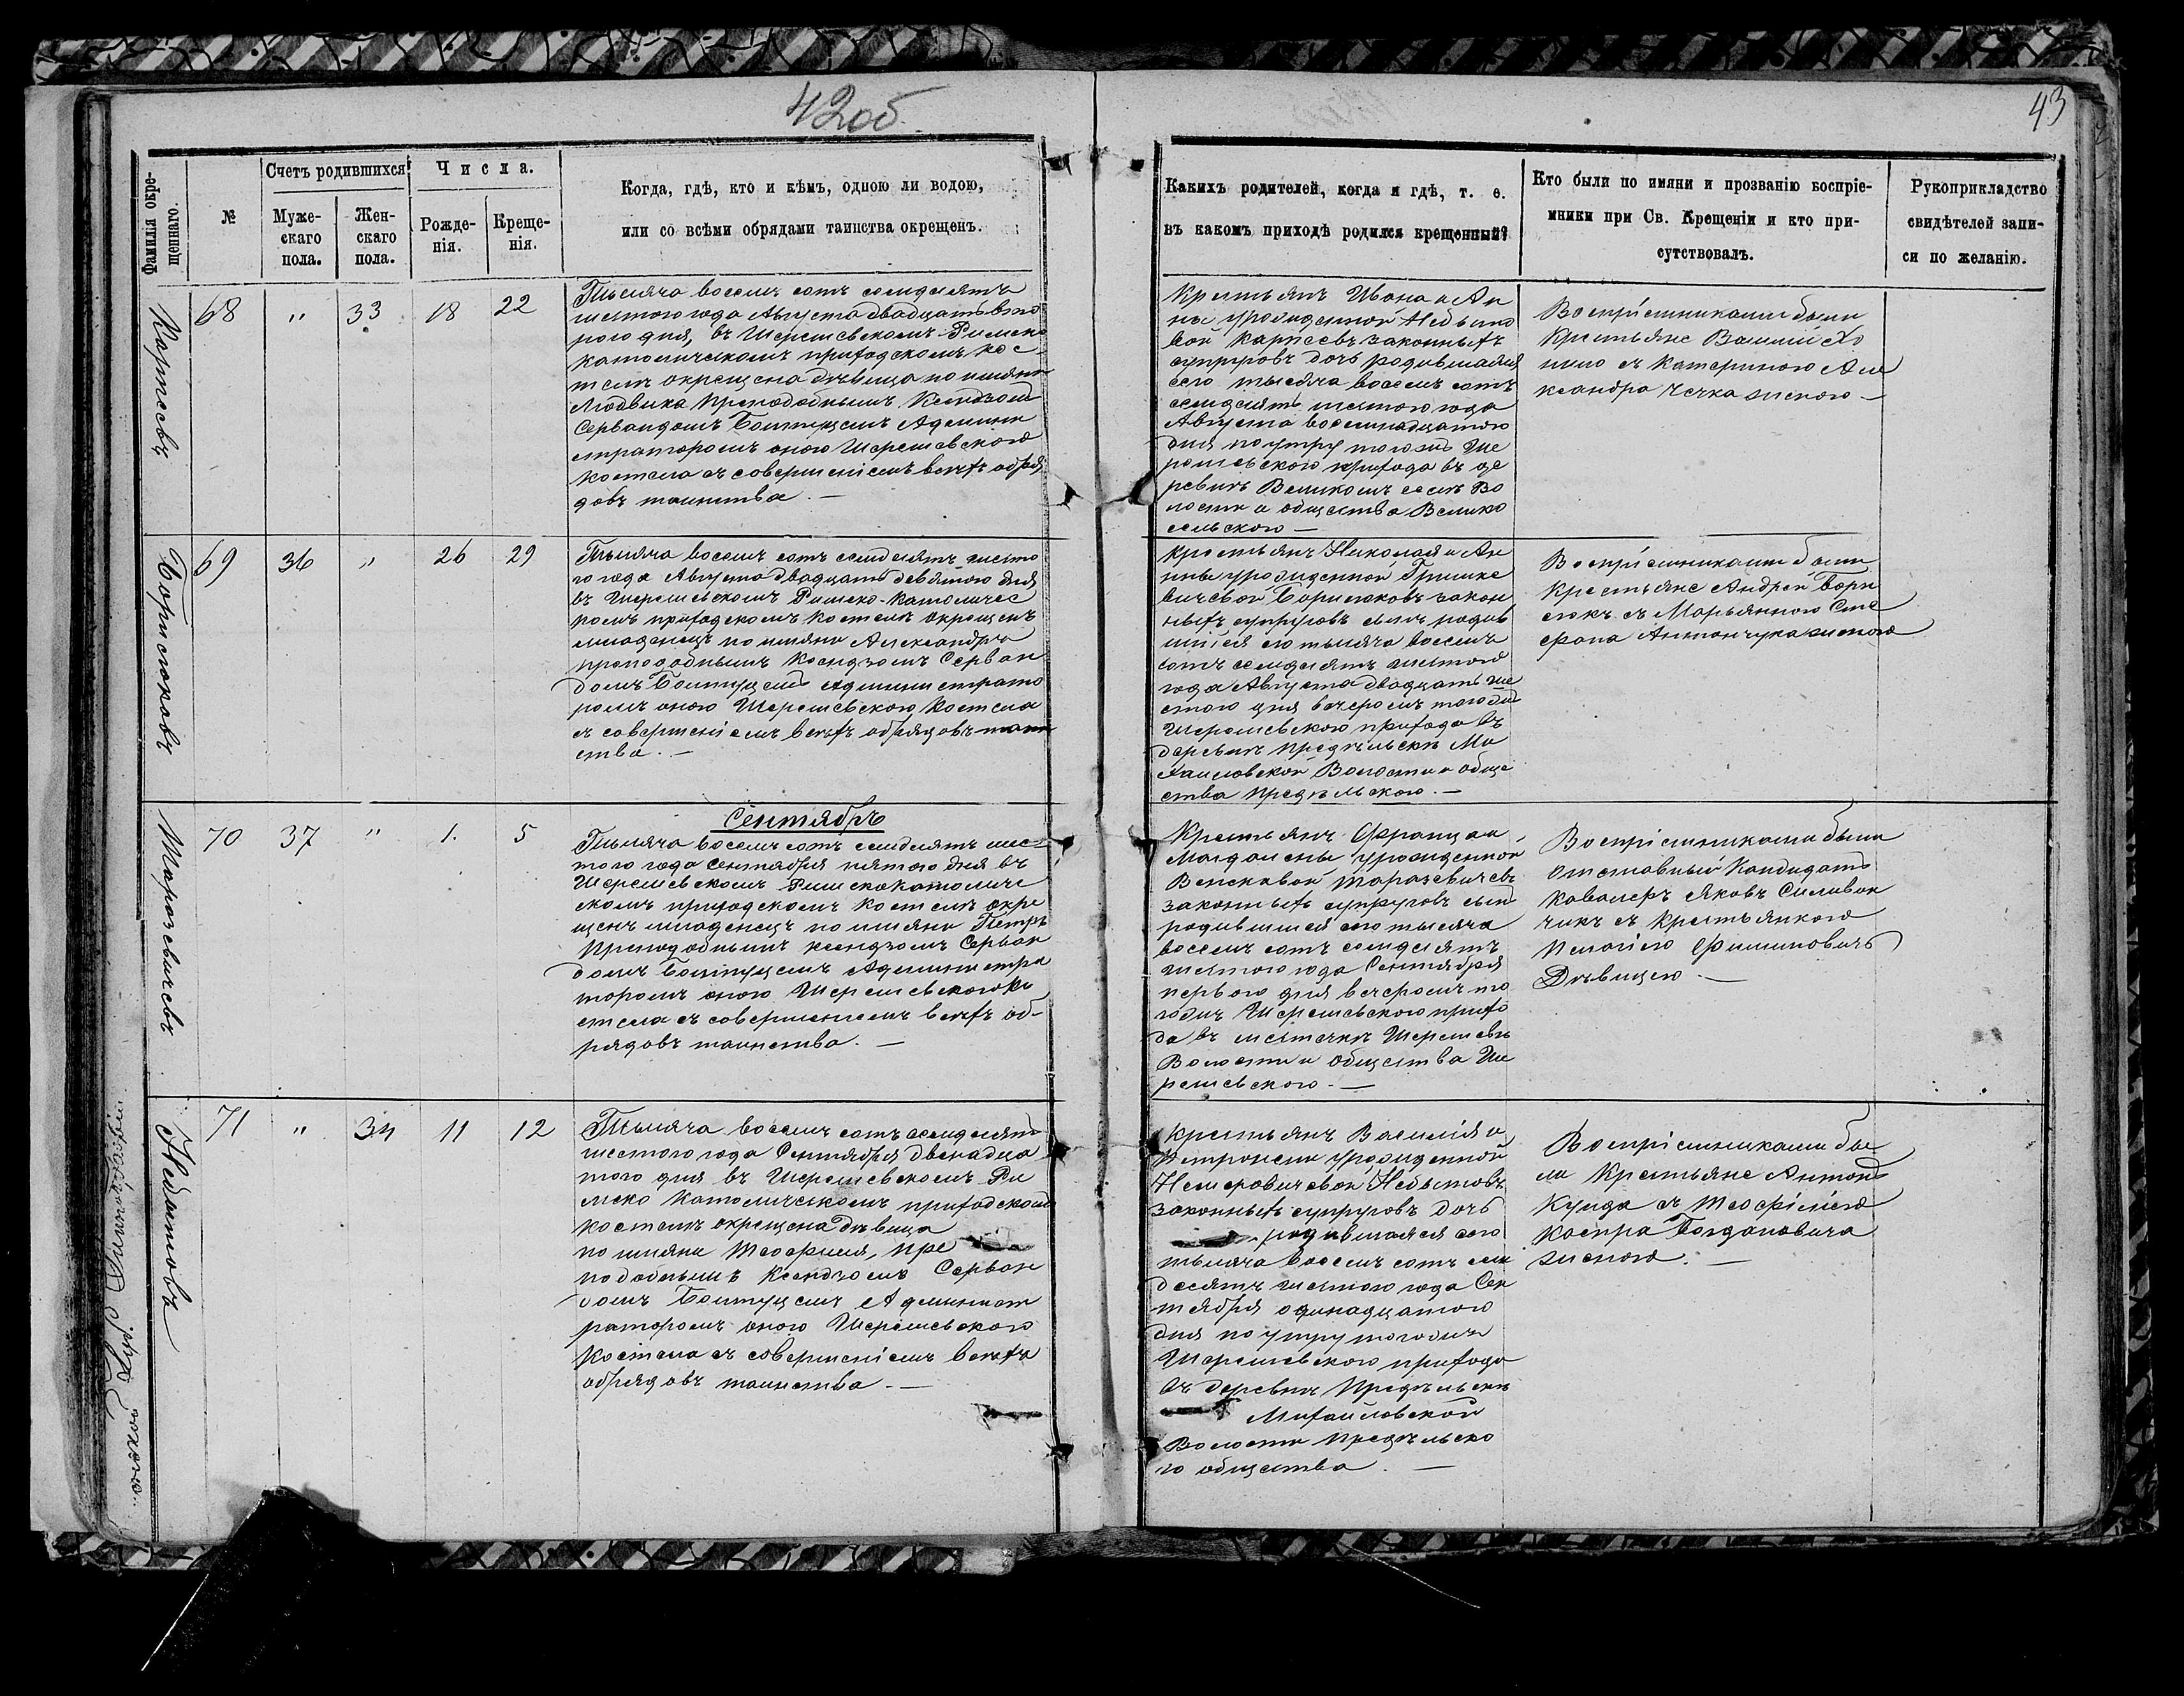 42об
43
Фамилія окре-
щеннаго.
№
Счетъ родившихся
Муже-
скаго
пола.
Жен-
скаго
пола.
Числа.
Рожде-
нія.
Креще-
нія.
Когда, гдѣ, кто и кѣмъ, одною ли водою,
или со всѣми обрядами таинства окрещенъ.
Какихъ родителей, когда и гдѣ, т. е.
въ какомъ приходѣ родился крещенный?
Кто были по имяни и прозванію воспріе-
мники при Св. Крещеніи и кто при-
сутствовалъ.
Рукоприкладство
свидѣтелей запи-
си по желанію.
Карпѣевъ
68 " 33 18 22
Тысяча восемь сотъ семдесятъ
шестого года Августа двадцать вто
рого дня, въ Шерешевскомъ Римско
католическомъ приходскомъ кос
телѣ окрещена дѣвица по имяни
Людвика Преподобнымъ Ксендзомъ
Сервандомъ Болтуцемъ Админи
страторомъ оного Шерешевского
костела съ совершеніемъ всѣхъ обря
довъ таинства. —
Крестьянъ Ивана и Ан
ны урожденной Небыто
вой Карпеевъ законныхъ
супруговъ дочь родившаяся
сего тысяча восемь сотъ
семдесятъ шестого года
Августа восемнадцатого
дня по утру тогожъ Ше
решевского прихода въ де
ревнѣ Великомъ селѣ Во
лости и общества Велико
сельского —
Воспріемниками были
Крестьяне Василій Хо
съ Катериною Але
ксандра женою —
Борисюковъ
69 36 " 26 29
Тысяча восемь сотъ семдесятъ шесто
го года Августа двадцать девятого дня
въ Шерешевскомъ Римско-Католичес
комъ приходскомъ костелѣ окрещенъ
младенецъ по имяни Александръ
преподобнымъ Ксендзомъ Серван
домъ Болтуцемъ администрато
ромъ оного Шерешевского костела
съ совершеніемъ всѣхъ обрядовъ таин
ства. —
Крестьянъ Николая и Ан
ны урожденной Гришке
вичевой Борисюковъ закон
ныхъ супруговъ сынъ родив
шійся сего тысяча восемь
сотъ семдесятъ шестого
года Августа двадцать ше
стого дня вечеромъ тогожъ
Шерешевского прихода въ
деревнѣ Предѣльскѣ Ми
хайловской Волости и обще
ства Предѣльского. —
Воспріемниками были
Крестьяне Андрей Бори
сюкъ съ Марьянною Сте
фана Антончука женою
Таразевичевъ
Сентябрь
70 37 " 1. 5
Тысяча восемь сотъ семдесятъ шес=
того года Сентября пятого дня въ
Шерешевскомъ Римскокатоличе
скомъ приходскомъ костелѣ окре
щенъ младенецъ по имяни Петръ
Преподобнымъ ксендзомъ Серван
домъ Болтуцемъ Администра
торомъ оного Шерешевского ко
стела съ совершеніемъ всѣхъ об-
рядовъ таинства. —
Крестьянъ Франца и
Магдалены урожденной
Таразевичевъ
законныхъ супруговъ сынъ
родившійся сего тысяча
восемь сотъ семдесятъ
шестого года Сентября
первого дня вечеромъ то
гожъ Шерешевского прихо
да въ мѣстечкѣ Шерешевѣ
Волости и общества Ше
решевского. —
Воспріемниками были
отставный Кандидатъ
Кавалеръ Яковъ Силивон
чикъ съ крестьянкою
Пелагіею Филиповичъ
Дѣвицею. —
Небытовъ
71 " 34 11 12
Тысяча восемь сотъ семдесятъ
шестого года Сентября двенадца
того дня въ Шерешевскомъ Ри
мско католическомъ приходскомъ
костелѣ окрещена дѣвица
по имяни Теофилія, пре
подобнымъ Ксендзомъ Серван
домъ Болтуцемъ Админист
раторомъ оного Шерешевского
Костела съ совершеніемъ всѣхъ
обрядовъ таинства. —
Крестьянъ Василія и
Петронели урожденной
Немеровичевой Небытовъ
законныхъ супруговъ дочь
родившаяся сего
тысяча восемь сотъ сем
десятъ шестого года Сен
тября одинадцатого
дня по утру тогожъ
Шерешевского прихода
въ деревнѣ Предѣльскѣ
Михайловской
Волости Предѣльско
го общества. —
Воспріемниками бы
ли Крестьяне Антонъ
Кунда съ Теофіліею
Каспра Богдановича
женою. —